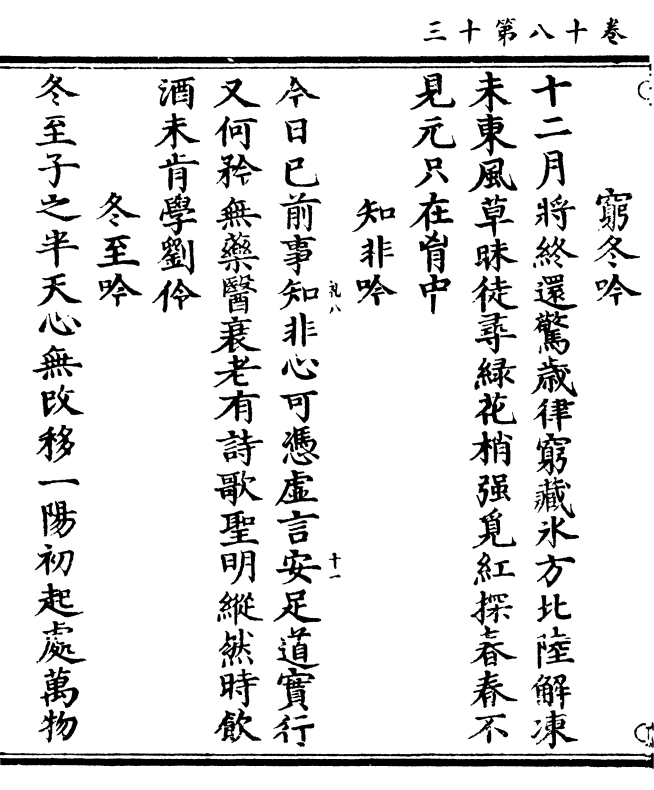 卷十八第十三
窮冬吟
十二月將終還驚歳律窮藏氷方北陸解凍
未東風草昧徒尋緑花梢强覓紅探春春不
見元只在胷中
知非吟
八
十一
今日已前事知非心可憑虛言安足道實行
又何矜無藥醫衰老有詩歌聖明縱然時飲
酒未肯學劉伶
冬至吟
冬至子之半天心無改移一陽初起處萬物